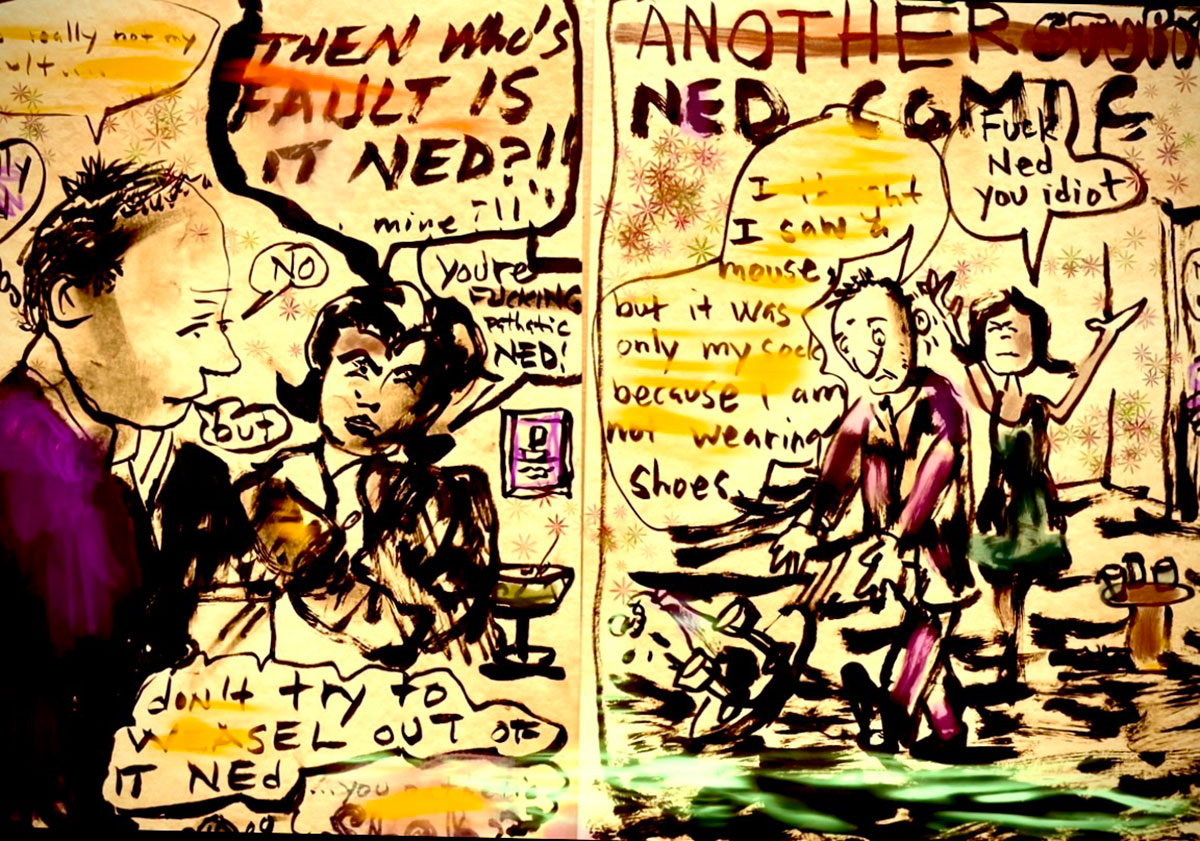 really not my
THEN WHO'S
FAULT IS
IT NED?!!
mine?!!
NO
you're
FUCKING
pathetic
NED!
but
don't try to
WEASEL OUT OF
IT NEd
...you
ANOTHER
NED COMIC
I thought
I saw a
mouse
but it was
only my sock
because I am
not wearing
shoes
Fuck
Ned
you idiot